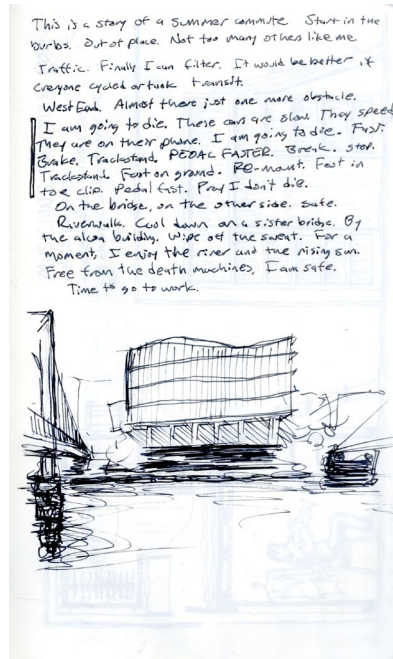 This is a story of a summer commute. Start in the
burbs. Out of place. Not too many others like me
Traffic. Finally I can filter. It would be better if
everyone cycled or took transit.
West End. Almost there just one more obstacle.
I am going to die. These cars are slow. They speed
They are on their phone. I am going to die. Fast.
Brake. Trackstand. PEDAL FASTER. Break. stop.
Trackstand. Foot on ground. Re-mount. Feet in
toe clip. Pedal fast. Pray I don't die.
On the bridge, on the other side. safe.
Riverwalk. Cool down on a sister bridge. By
the alcoa building. Wipe off the sweat. For a
moment, I enjoy the river and the rising sun.
Free from the death machines, I am safe.
Time to go to work.